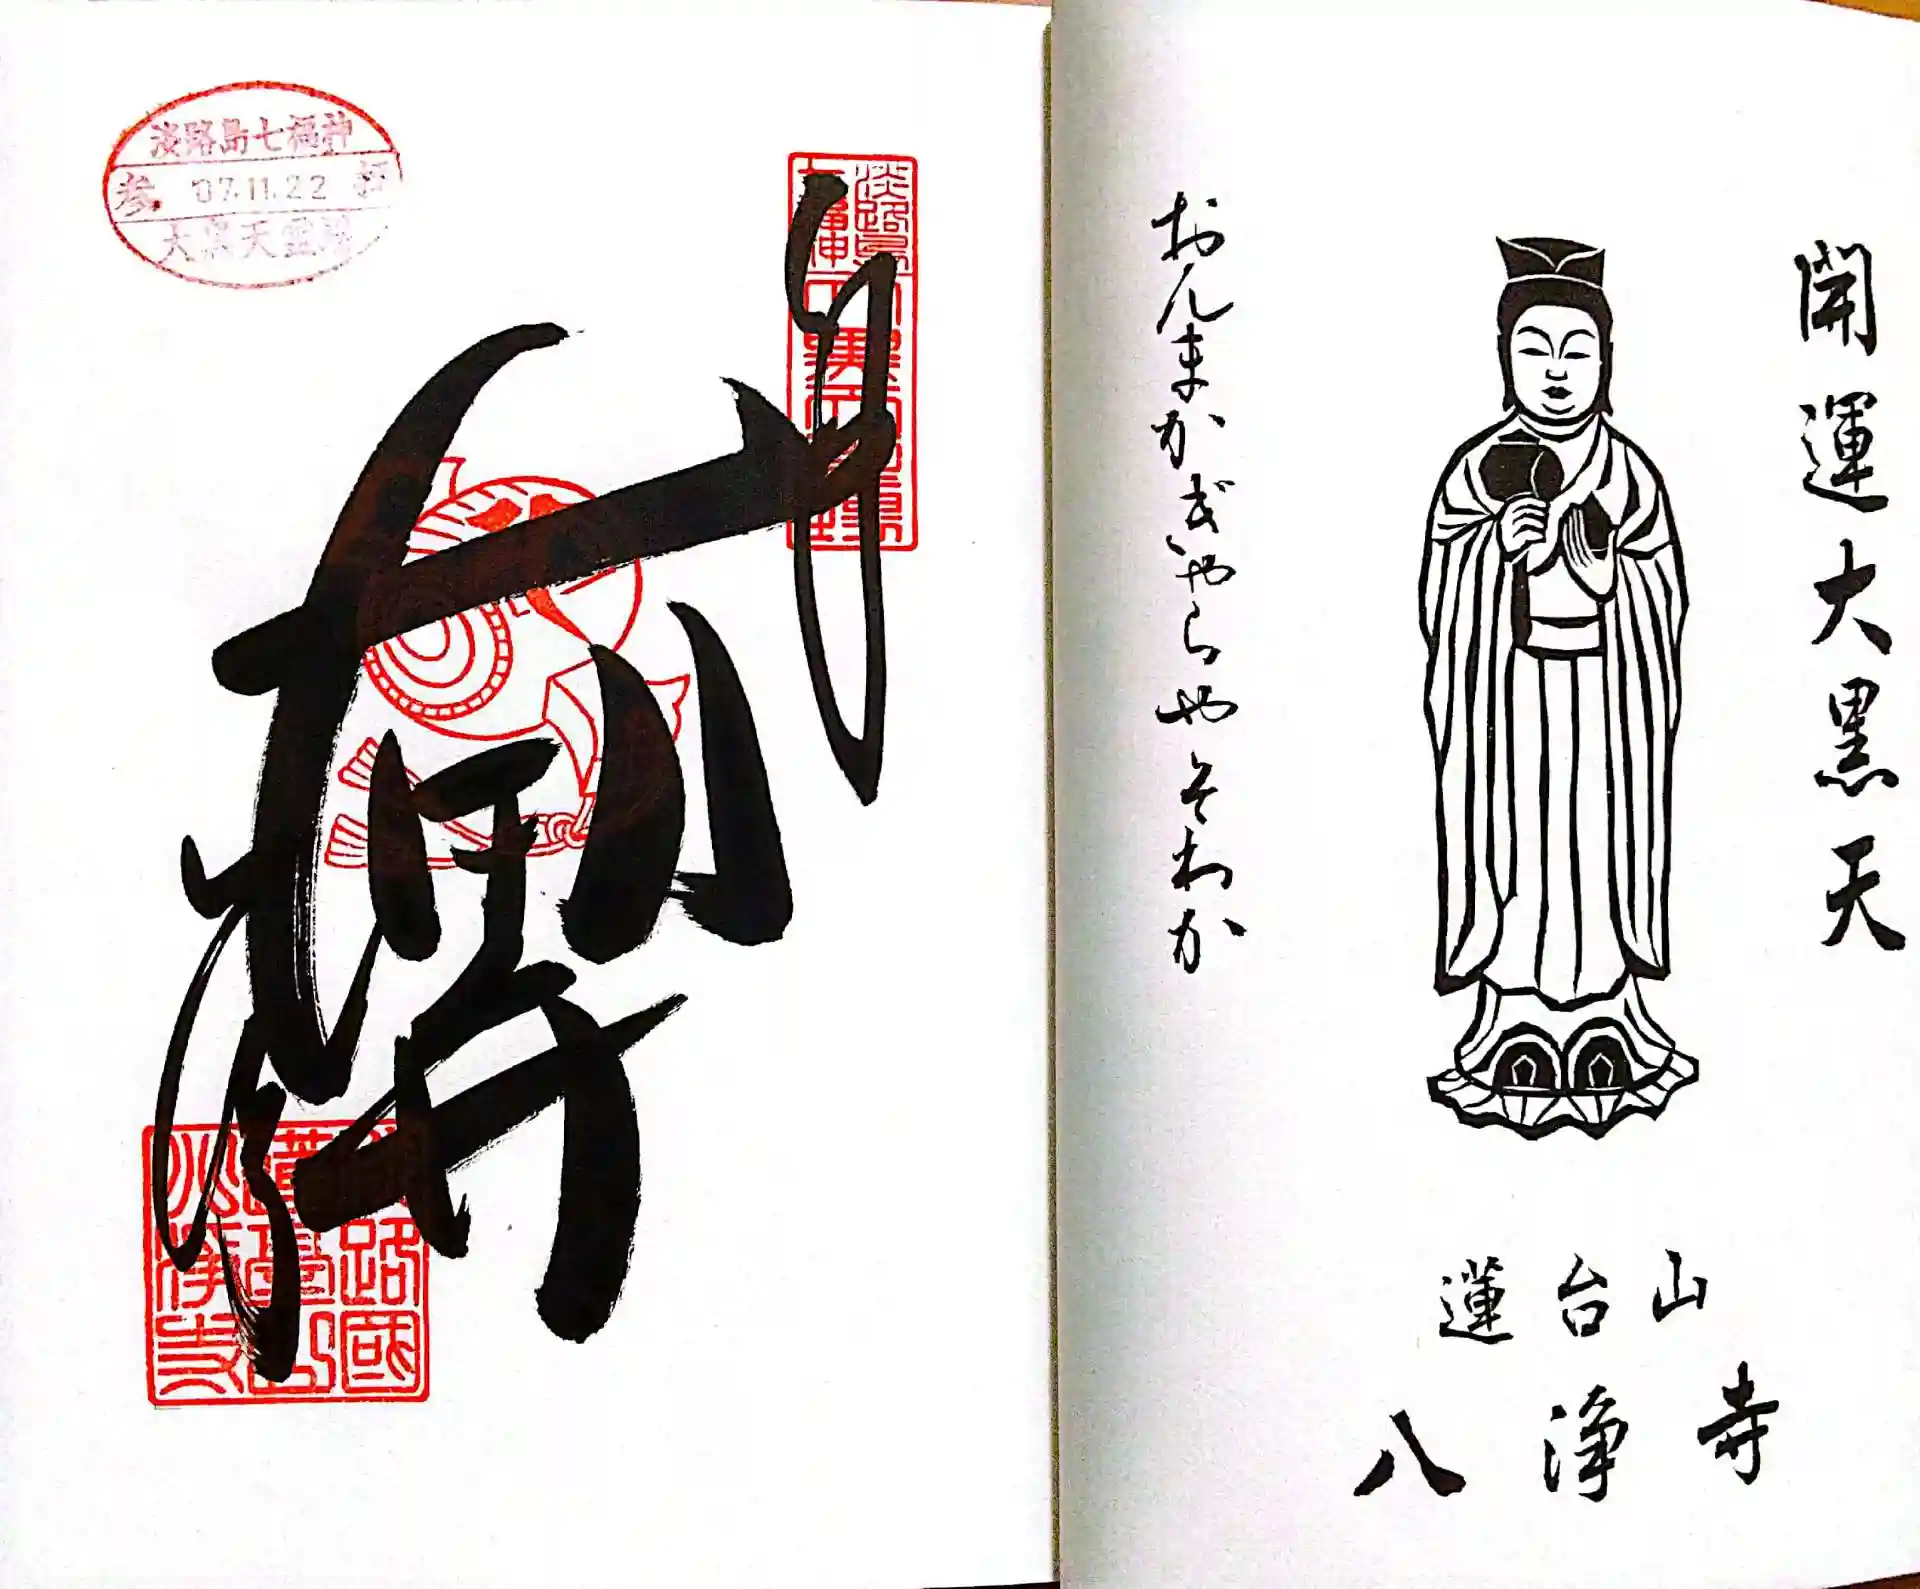 開運大黒天
おんまかぎゃらやそわか
蓮台山
八浄寺
淡路島七福神
参 '07.11.22 拝
大黒天霊場
淡路島
七福神
大黒天霊場
淡路國
蓮臺山
八浄寺